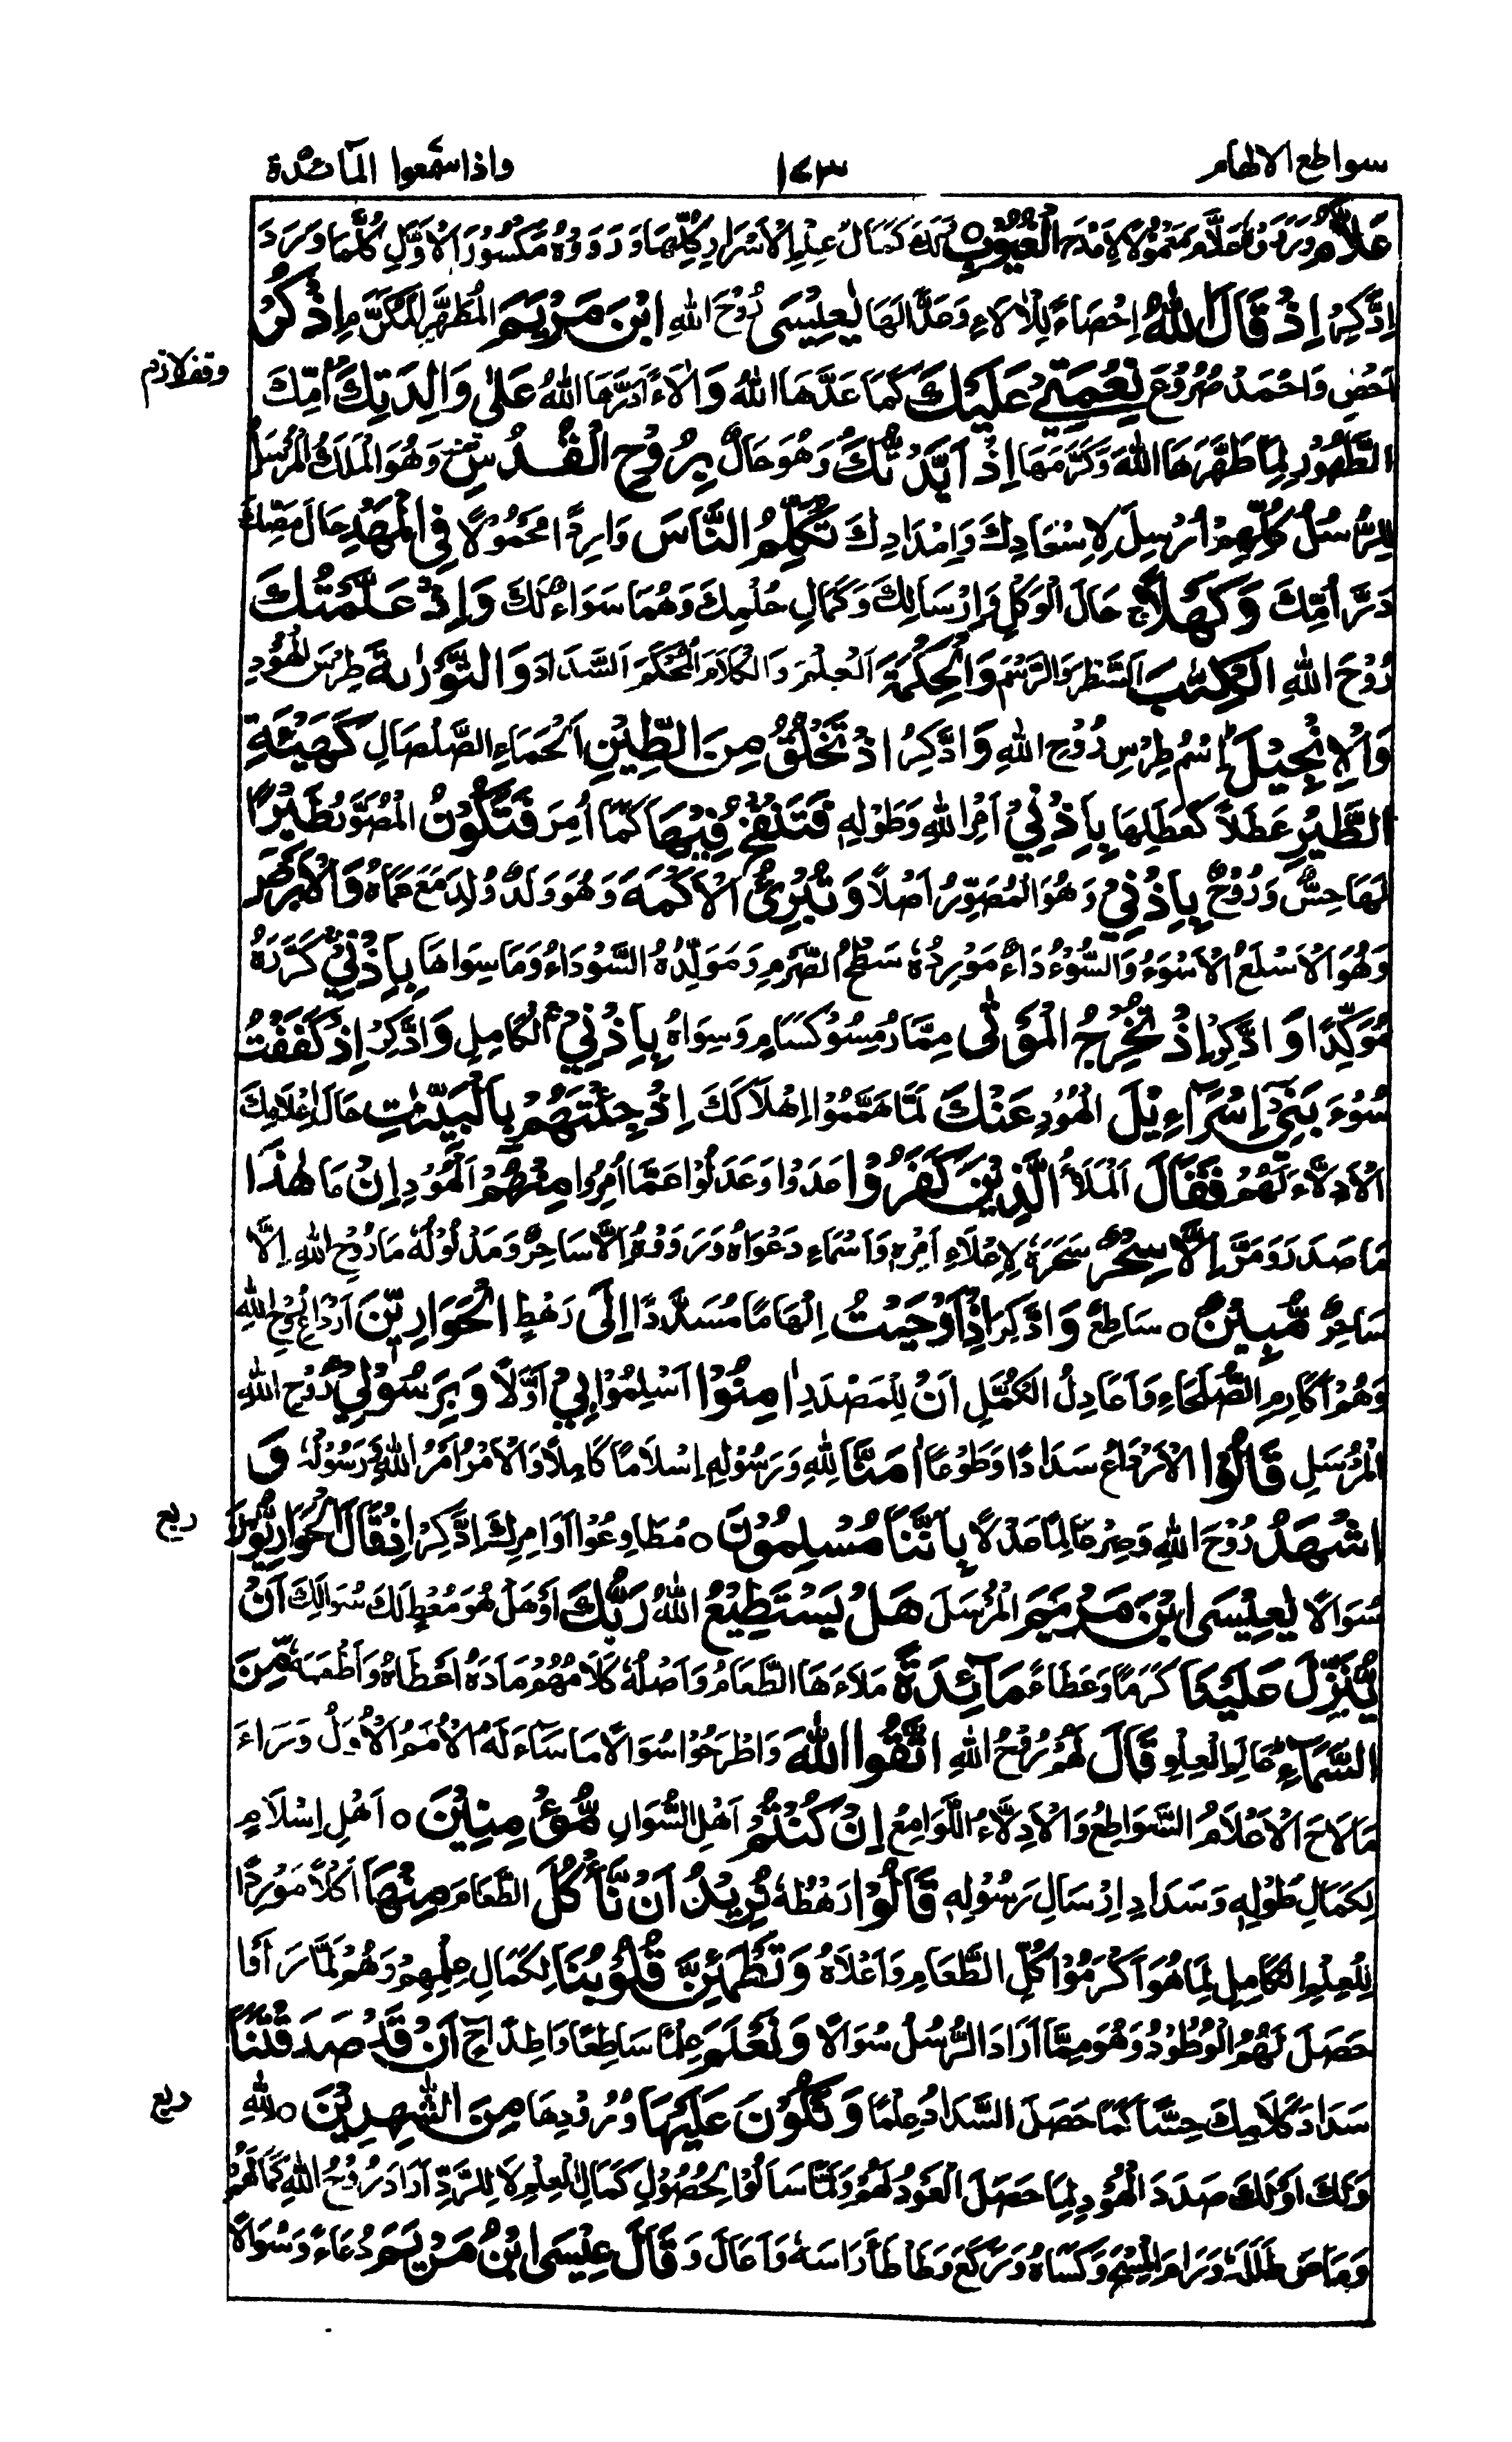 سواطع الالهام ١٧٣ واذا سمعوا المآئدة
عَلَّامُ الْغُيُوْبِ كَمَالُ عِلْمِ الْاَسْرَارِ كُلِّهَا وَرَوَوْهُ مَكْسُوْرَ الْاَوَّلِ كُلَّمَا وَرَدَ
اِدَّكِرْ اِذْ قَالَ اللّٰهُ اِحْصَاءً لِلْاٰلَاءِ وَعَدًّا لَهَا يٰعِيْسَى رُوْحَ اللّٰهِ ابْنَ مَرْيَمَ الْمُطَهَّرِ اذْكُرْ
وقف لازم
اَحْصِ وَاحْمَدْ نِعْمَتِيْ عَلَيْكَ كَمَا عَدَّهَا اللّٰهُ وَاٰلَاءً اَدَرَّهَا اللّٰهُ عَلٰى وَالِدَتِكَ اُمِّكَ
الطَّهُوْرِ لِمَا طَهَّرَهَا اللّٰهُ وَكَرَّمَهَا اِذْ اَيَّدْتُّكَ وَهُوَ حَالٌ بِرُوْحِ الْقُدُسِ وَهُوَ الْمَلَكُ الْمُرْسَلُ
لِلرُّسُلِ كُلِّهِمْ اُرْسِلَ لِاِسْعَادِكَ وَاِمْدَادِكَ تُكَلِّمُ النَّاسَ وَارِدًا مَحْمُوْلًا فِي الْمَهْدِ حَالَ مَصِّكَ
دَرَّ اُمِّكَ وَكَهْلًا حَالَ الْوَكْلِ وَاِرْسَالِكَ وَكَمَالِ حُلُمِكَ وَهُمَا سَوَاءٌ لَكَ وَاِذْ عَلَّمْتُكَ
رُوْحَ اللّٰهِ الْكِتٰبَ السَّطْرَ وَالرَّسْمَ وَالْحِكْمَةَ الْعِلْمَ وَالْكَلَامَ الْمُحْكَمَ السَّدَادَ وَالتَّوْرٰىةَ طِرْسَ الْهُوْدِ
وَالْاِنْجِيْلَ اِسْمُ طِرْسِ رُوْحِ اللّٰهِ وَادَّكِرْ اِذْ تَخْلُقُ مِنَ الطِّيْنِ الْحَمَاءِ الصَّلْصَالِ كَهَيْئَةِ
الطَّيْرِ عَطَلًا كَعَطَلِهَا بِاِذْنِيْ اَمْرِ اللّٰهِ وَطَوْلِهِ فَتَنْفُخُ فِيْهَا كَمَا اُمِرَ فَتَكُوْنُ الْمُصَوَّرُ طَيْرًا
لَهَا حِسٌّ وَرُوْحٌ بِاِذْنِيْ وَهُوَ الْمُصَوِّرُ اَصْلًا وَتُبْرِئُ الْاَكْمَهَ وَهُوَ وَلَدٌ وُلِدَ مَعَ عَمَاهُ وَالْاَبْرَصَ
وَهُوَ الْاَسْلَعُ الْاَسْوَءُ وَالسُّوْءُ دَاءٌ مَوْرِدُهُ سَطْحُ الصَّرْمِ وَمَوَلِّدُهُ السَّوْدَاءُ وَمَا سِوَاهَا بِاِذْنِيْ كَرَّرَهُ
مُؤَكِّدًا وَادَّكِرْ اِذْ تُخْرِجُ الْمَوْتٰى مِمَّا رُمِسُوْا كَسَامٍ وَسِوَاهُ بِاِذْنِيْ الْكَامِلِ وَادَّكِرْ اِذْ كَفَفْتُ
سُوْءَ بَنِيْ اِسْرَآءِيْلَ الْهُوْدِ عَنْكَ لَمَّا هَمُّوْا اِهْلَاكَكَ اِذْ جِئْتَهُمْ بِالْبَيِّنٰتِ حَالَ اِعْلَامِكَ
الْاَدِلَّاءَ لَهُمْ فَقَالَ الْمَلَأُ الَّذِيْنَ كَفَرُوْا حَدَوْا وَعَدَلُوْا عَمَّا اُمِرُوْا مِنْهُمْ الْهُوْدِ اِنْ مَا هٰذَا
مَا صَدَرَ وَمَرَّ اِلَّا سِحْرٌ سَحَرَهُ لِاِعْلَاءِ اَمْرِهِ وَاَسْمَاءِ دَعْوَاهُ وَرَوَوْهُ اِلَّا سَاحِرٌ وَمَدْلُوْلُهُ مَا رُوْحُ اللّٰهِ اِلَّا
سَاحِرٌ مُّبِيْنٌ ○ سَاطِعٌ وَادَّكِرْ اِذْ اَوْحَيْتُ اِلْهَامًا مُسَدَّدًا اِلَى رَهْطِ الْحَوَارِيّٖنَ اَرْدَاءِ رُوْحِ اللّٰهِ
وَهُمْ اَكَارِمُ الصُّلَحَاءِ وَاَعَادِلُ الْكُمَّلِ اَنْ لِلْمَصْدَرِ اٰمِنُوْا اَسْلِمُوْا بِيْ اَوَّلًا وَبِرَسُوْلِيْ رُوْحِ اللّٰهِ
الْمُرْسَلِ قَالُوْا الْاَرْدَاءُ سَدَادًا وَطَوْعًا اٰمَنَّا لِلّٰهِ وَرَسُوْلِهِ اِسْلَامًا كَامِلًا وَالْاَمْرُ اَمْرُ اللّٰهِ وَرَسُوْلِهِ وَ
ربع
اشْهَدْ رُوْحَ اللّٰهِ بِاَنَّنَا مُسْلِمُوْنَ ○ مُطَاوِعُوْا اَوَامِرِكَ اِدَّكِرْ اِذْ قَالَ الْحَوَارِيُّوْنَ
سُوَالًا يٰعِيْسَى ابْنَ مَرْيَمَ الْمُرْسَلَ هَلْ يَسْتَطِيْعُ اللّٰهُ رَبُّكَ اَوْ هَلْ هُوَ مُعْطٍ لَكَ سُوَالَكَ اَنْ
يُّنَزِّلَ عَلَيْنَا كَرَمًا وَعَطَاءً مَآئِدَةً مَلَاءَهَا الطَّعَامُ وَاَصْلُهُ كَلَامُهُمْ مَادَهُ اَعْطَاهُ وَاَطْعَمَهُ مِّنَ
السَّمَآءِ حَالِ الْعِلْوِ قَالَ لَهُمْ رُوْحُ اللّٰهِ اتَّقُوا اللّٰهَ وَاطْرَحُوْا سُوَالًا مَا سَاءَلَهُ الْاُمَمُ الْاُوَلُ وَرَاءَ
مَا لَاحَ الْاَعْلَامُ السَّوَاطِعُ وَالْاَدِلَّاءُ اللَّوَامِعُ اِنْ كُنْتُمْ اَهْلَ السُّوَالِ مُّؤْمِنِيْنَ ○ اَهْلَ اِسْلَامٍ
لِكَمَالِ طَوْلِهِ وَسَدَادِ اِرْسَالِ رَسُوْلِهِ قَالُوْا رَهْطُهُ نُرِيْدُ اَنْ نَّأْكُلَ الطَّعَامَ مِنْهَا اَكْلًا مَوْرِدًا
لِلْعِلْمِ الْكَامِلِ لِمَا هُوَ اَكْرَمُ اُكُلِ الطَّعَامِ وَاَعْلَاهُ وَتَطْمَئِنَّ قُلُوْبُنَا لِكَمَالِ عِلْمِهِمْ وَهُمْ لَمَّا رَاَوْا
حَصَلَ لَهُمُ الْوُطُوْدُ وَهُوَ مِمَّا اَرَادَ الرُّسُلُ سُوَالًا وَنَعْلَمَ عِلْمًا سَاطِعًا وَاطِدًا اَنْ قَدْ صَدَقْتَنَا
ربع
سَدَادَ كَلَامِكَ حِسًّا كَمَا حَصَلَ السَّدَادُ عِلْمًا وَنَكُوْنَ عَلَيْهَا وُرُوْدِهَا مِنَ الشّٰهِدِيْنَ ○ لِلّٰهِ
وَلَكَ اَوْ لَكَ صَدَدَ الْهُوْدِ لِمَا حَصَلَ الْعَوْدُ لَهُمْ وَلَمَّا سَاَلُوْا لِحُصُوْلِ كَمَالِ الْعِلْمِ لَا لِلرَّدِّ اَرَادَ رُوْحُ اللّٰهِ كَمَالَهُمْ
وَكَسَاهُ وَرَكَعَ وَطَأْطَأَ رَاسَهُ وَ قَالَ عِيْسَى ابْنُ مَرْيَمَ دُعَاءً وَسُوَالًا